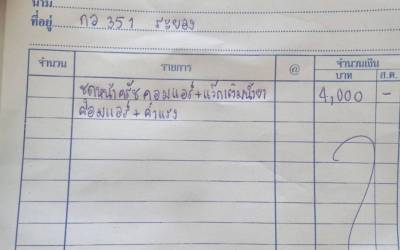 นาม
ที่อยู่ กอ 351 ระยอง
จำนวน รายการ @ จำนวนเงิน
บาท ส.ต.
ชุดหน้าครัช คอมแอร์+แว๊กเติมน้ำยา 4,000 -
ค้อมแอร์ + ค่าแรง